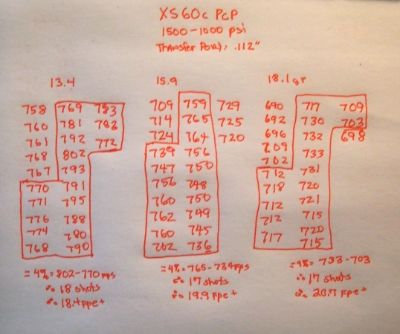 XS60c PCP
1500-1000 psi
Transfer Port: .112"
13.4 15.9 18.1gr
758 769 783 709 759 729 690 717 709
760 781 782 714 765 725 692 730 703
761 792 772 724 764 720 696 732 698
768 802 739 756 709 733
767 793 747 750 702 731
770 791 756 748 712 720
771 795 760 750 718 721
776 788 762 749 712 715
774 780 760 745 712 720
768 790 762 736 717 715
=4% = 802-770 fps =4% = 765-734fps =4% = 733-703
= 18 shots = 17 shots = 17 shots
= 18.4 fpe+ = 19.9 fpe+ = 20.7 fpe+